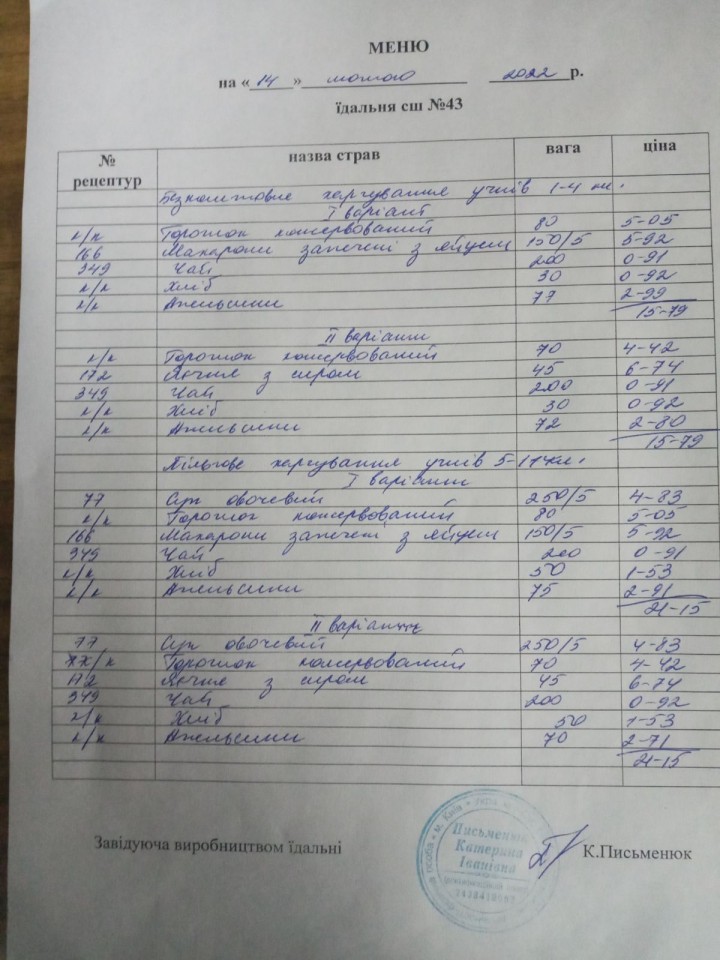 МЕНЮ
на « 14 » лютого 2022 р.
їдальня сш №43
№ рецептур назва страв вага ціна
Безкоштовне харчування учнів 1-4 кл.
I варіант
к/к Горошок консервований 80 5-05
166 Макарони запечені з яйцем 150/5 5-92
349 Чай 200 0-91
к/к Хліб 30 0-92
к/к Апельсини 77 2-99
15-79
II варіант
к/к Горошок консервований 70 4-42
172 Яєчня з сиром 45 6-74
349 Чай 200 0-91
к/к Хліб 30 0-92
к/к Апельсини 72 2-80
15-79
Пільгове харчування учнів 5-11 кл.
I варіант
77 Суп овочевий 250/5 4-83
к/к Горошок консервований 80 5-05
166 Макарони запечені з яйцем 150/5 5-92
349 Чай 200 0-91
к/к Хліб 50 1-53
к/к Апельсини 75 2-91
21-15
II варіант
77 Суп овочевий 250/5 4-83
к/к Горошок консервований 70 4-42
172 Яєчня з сиром 45 6-74
349 Чай 200 0-92
к/к Хліб 50 1-53
к/к Апельсини 70 2-71
21-15
Завідуюча виробництвом їдальні К.Письменюк
Письменюк
Катерина
Іванівна